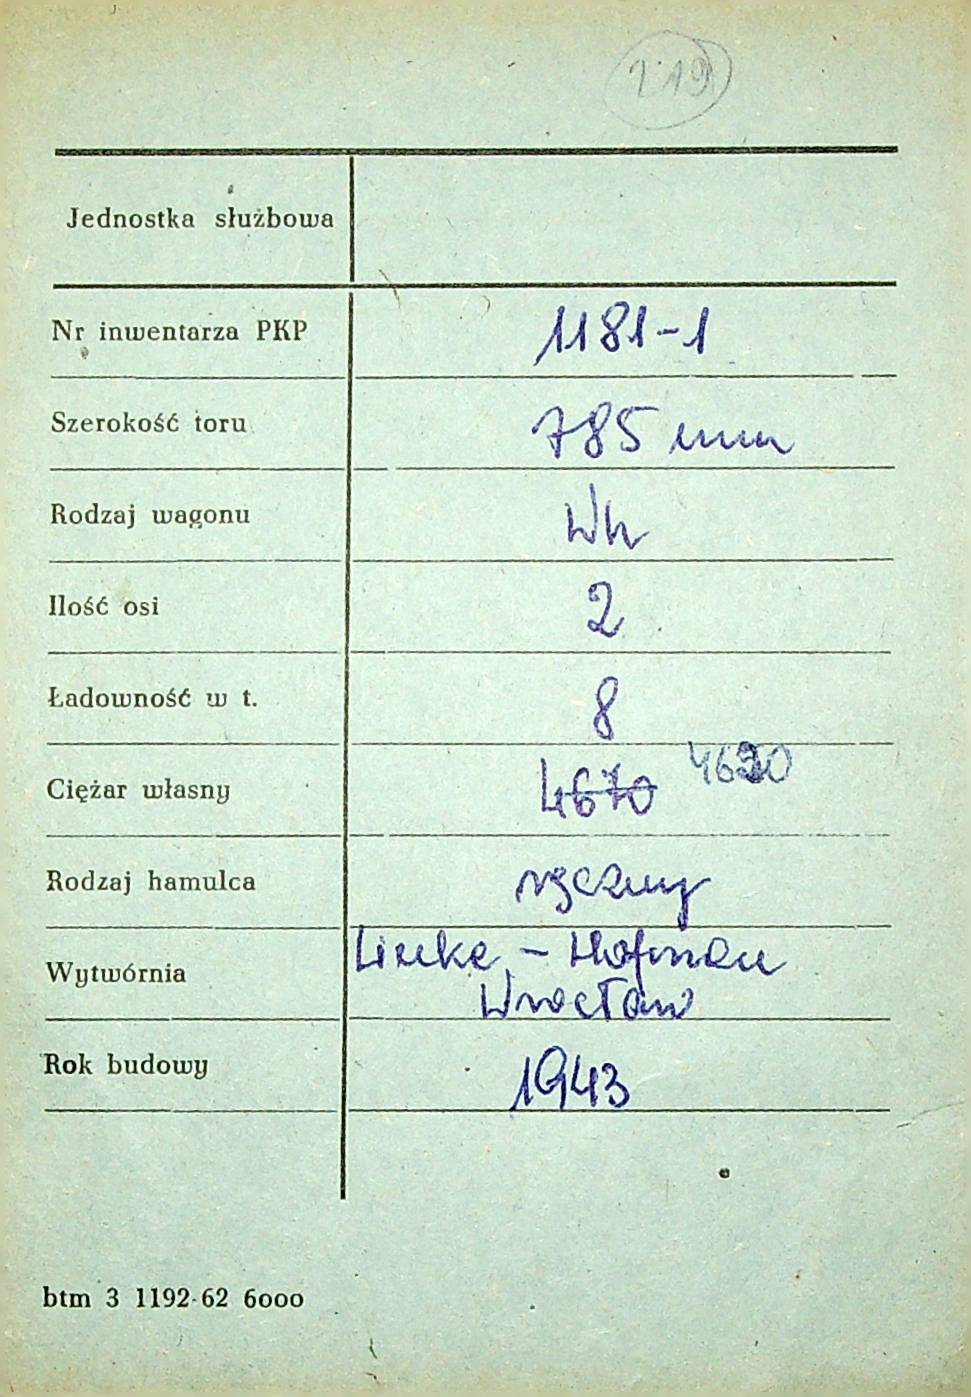 219
Jednostka służbowa
Nr inwentarza PKP 1181-1
Szerokość toru 785 mm
Rodzaj wagonu Wh
Ilość osi 2
Ładowność w t. 8
Ciężar własny 4670
Rodzaj hamulca ręczny
Wytwórnia Linke - Hofman
Wrocław
Rok budowy 1943
btm 3 1192-62 6000